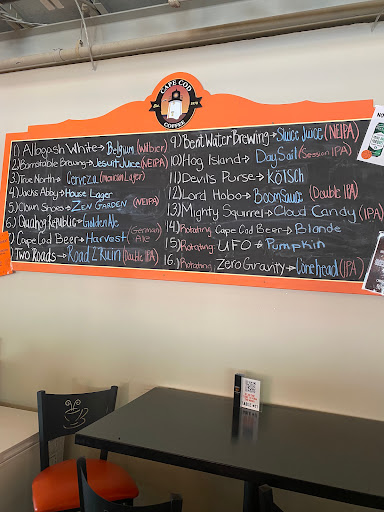 CAPE COD
COFFEE
1.) Allagash White→ Belgium (Witbier)
2) Barnstable Brewing→Jesuit Juice (NEIPA)
3) True North→ Cerveza (mexican Lager)
4.) Jacks Abby→House Lager
5.) Clown Shoes→ ZEN GARDEN (NEIPA)
6.) Quahog Republic→Golden Ale
7) Cape Cod Beer→Harvest (German Ale)
Two Roads→ Road 2 Ruin (Double IPA)
9.) Bent Water Brewing→Sluice Juice (NEIPA)
10.) Hog Island→ Day Sail (Session IPA)
11.) Devil's Purse→ KÖLSCH
12.) Lord Hobo→BoomSauce (Double IPA)
13.) Mighty Squirrel→Cloud Candy (IPA)
14.) Rotating Cape Cod Beer→Blonde
15.) Rotating UFO→Pumpkin
16.) Rotating Zero Gravity→Conehead (IPA)